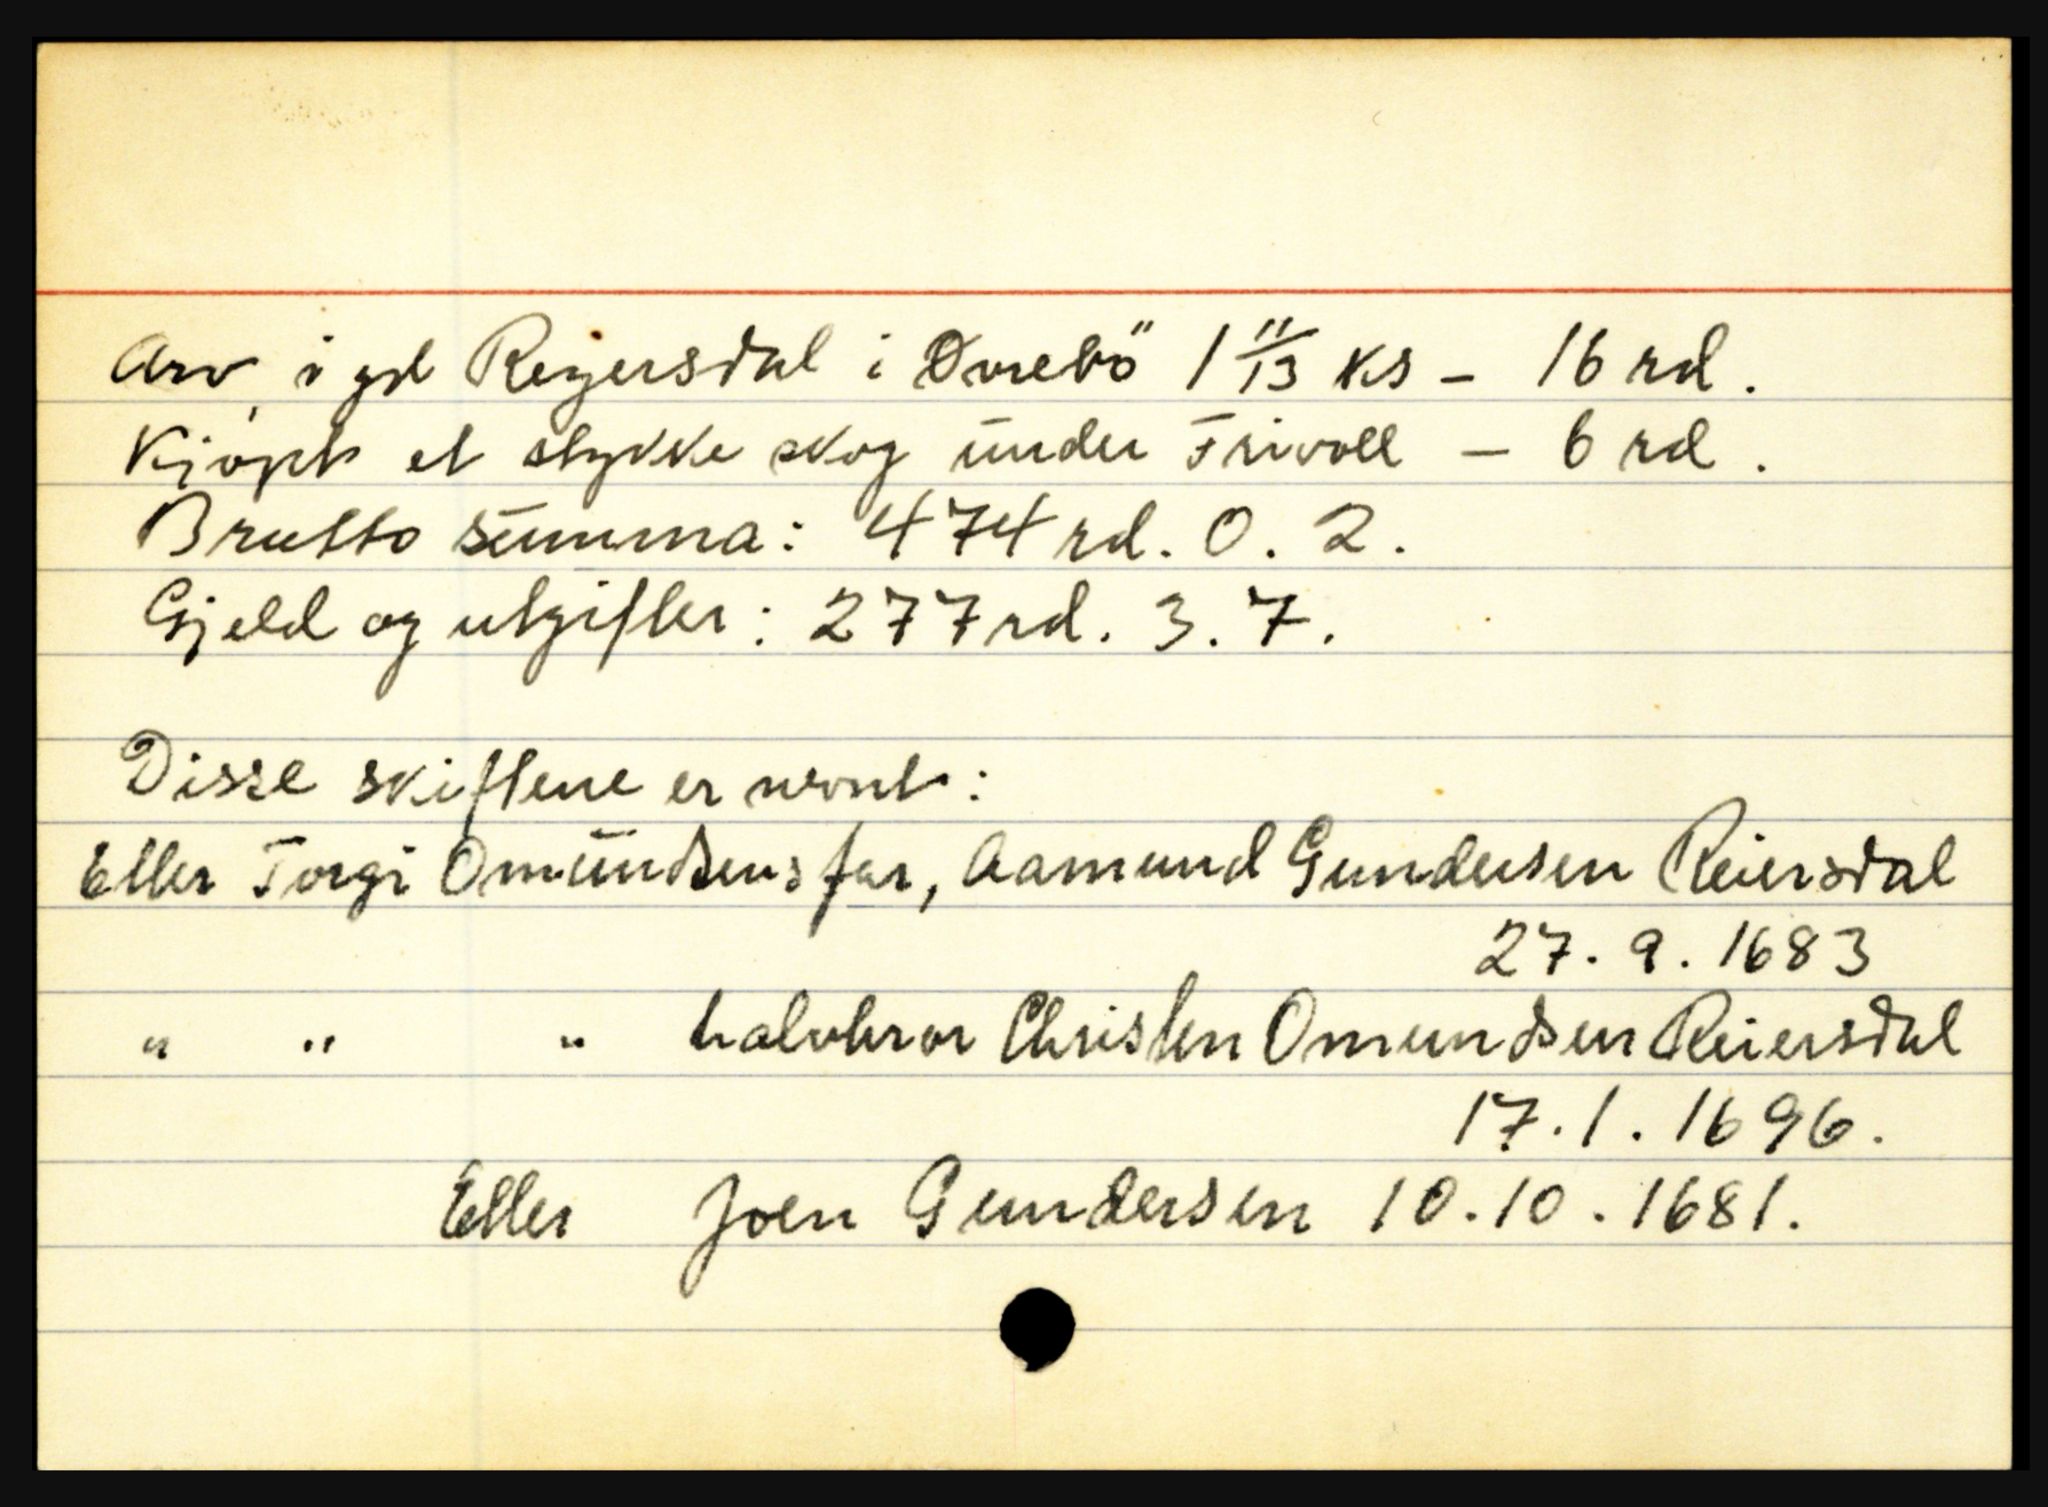 Arv i gd Reyersdal i Øvrebö 1 11/13 ks - 16 rd.
Kjöpt et stykke skog under Frivoll - 6 rd.
Brutto summa: 474 rd. 0. 2.
Gjeld og utgifter: 277 rd. 3. 7.
Disse skiftene er nevnt:
Etter Torgi Omundsens far, Aamund Gundersen Reiersdal
27. 9. 1683
" " " halvbror Christen Omundsen Reiersdal
17. 1. 1696.
Etter Joen Gundersen 10. 10. 1681.